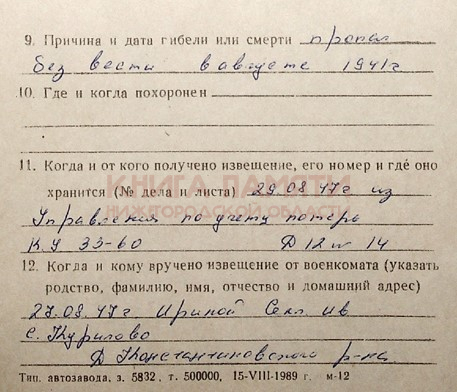 9. Причина и дата гибели или смерти пропал
без вести в августе 1941г
10. Где и когда похоронен
КНИГА ПАМЯТИ
НИЖЕГОРОДСКОЙ ОБЛАСТИ
11. Когда и от кого получено извещение, его номер и где оно
хранится (№ дела и листа) 29.08.47г из
Управления по учету потерь
К.У 33-60 Д 12 л 14
12. Когда и кому вручено извещение от военкомата (указать
родство, фамилию, имя, отчество и домашний адрес)
27.08.47г Ириной Ив
с. Курилово
Д Константиновского р-на
Тип. автозавода, з. 5832, т. 500000, 15-VIII-1989 г. м-12